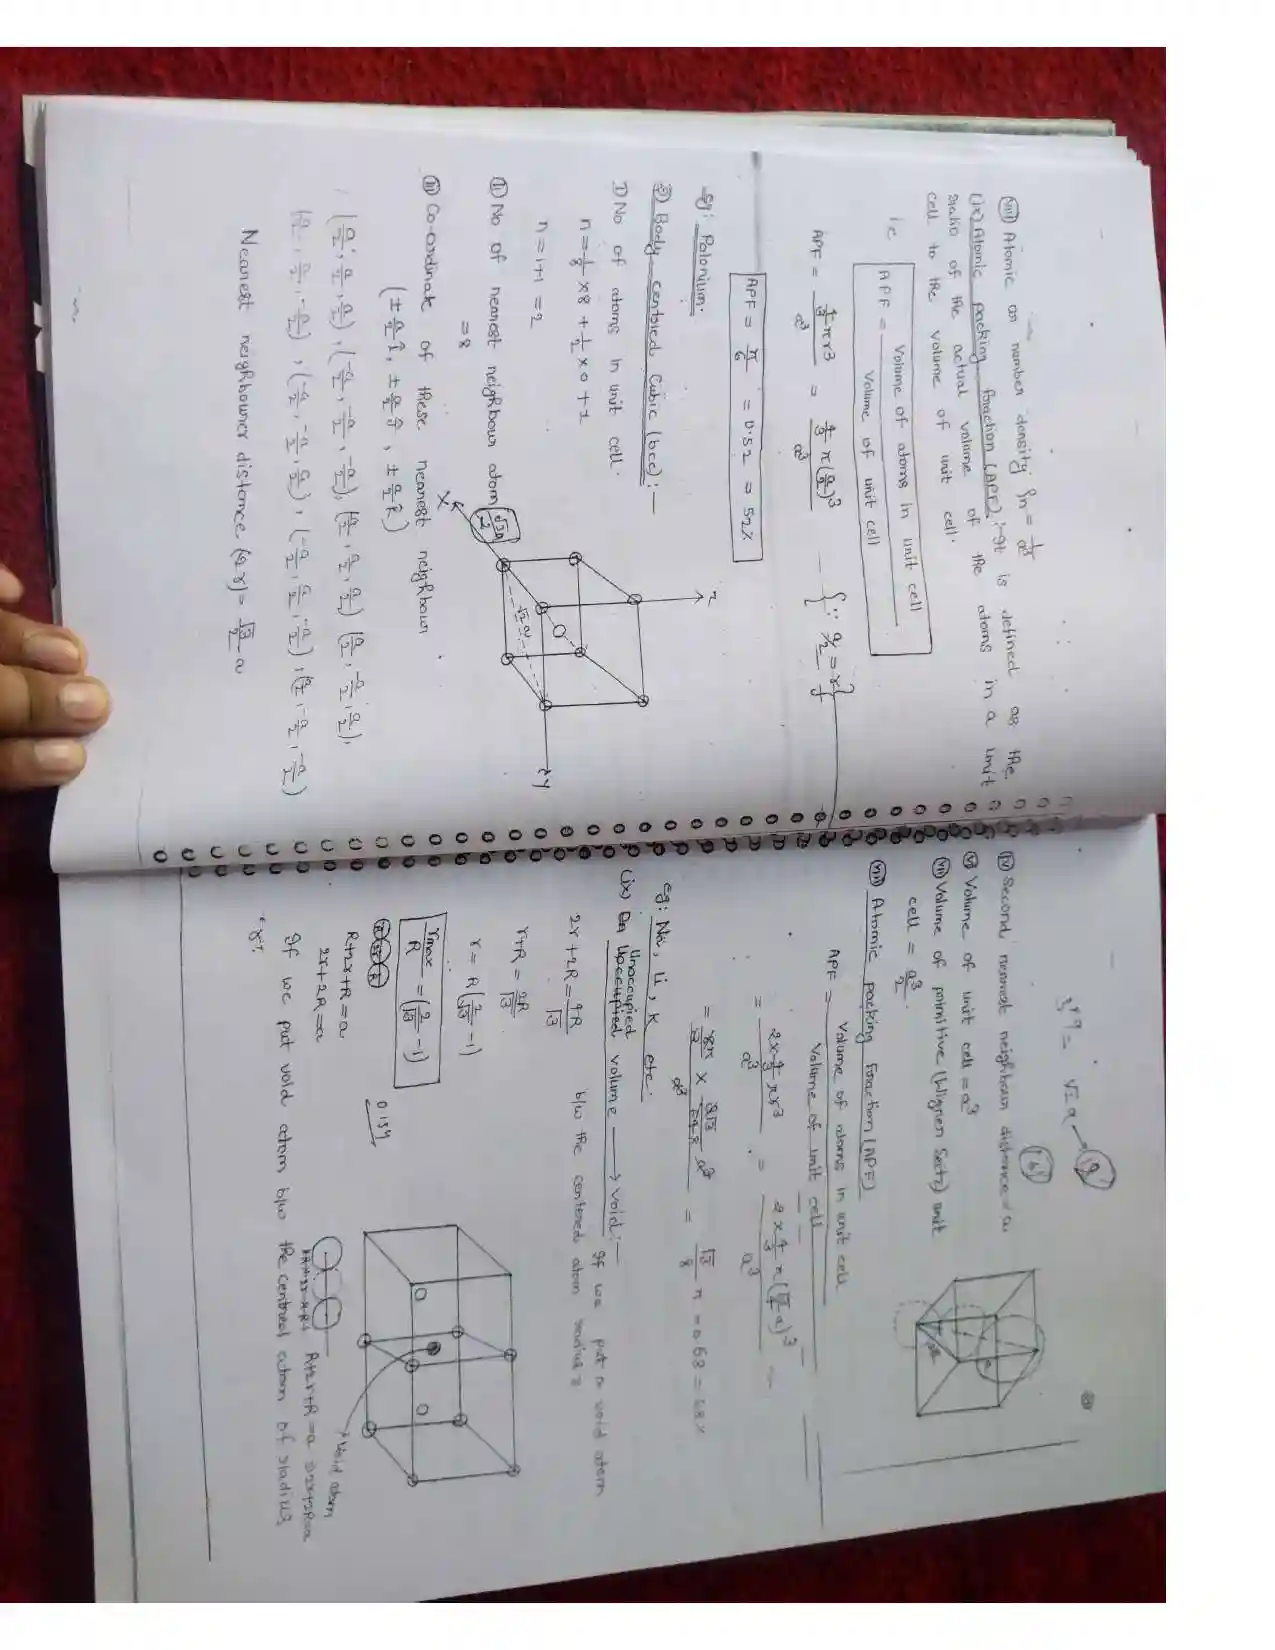 (viii) Atomic or number density ρn = 1/a³
(ix) Atomic packing fraction (APF) :- It is defined as the
ratio of the actual volume of the atoms in a unit
cell to the volume of unit cell.
ie APF = Volume of atoms in unit cell / Volume of unit cell
APF = 4/3 πr³ / a³ = 4/3 π(a/2)³ / a³ -- {∵ a/2 = r}
APF = π/6 = 0.52 = 52%
eg: Polonium.
② Body centred Cubic (bcc) :-
I) No of atoms in unit cell.
n = 1/8 × 8 + 1/2 × 0 + 1
n = 1+1 = 2
(II) No of nearest neighbour atom
= 8
√3a/2
X
Y
z
(III) Co-ordinate of these nearest neighbour
(± a/2 î, ± a/2 ĵ, ± a/2 k̂)
(a/2, a/2, a/2), (-a/2, -a/2, -a/2), (a/2, a/2, a/2) (a/2, -a/2, a/2),
(a/2, a/2, -a/2), (-a/2, -a/2, a/2), (-a/2, a/2, -a/2), (a/2, -a/2, -a/2)
Nearest neighbourer distance (2r) = √3/2 a
(IV) Second nearest neighbour distance = a
6
(VI) Volume of unit cell = a³
(VII) Volume of primitive (Wigner Seitz) unit
cell = a³/2
(VIII) Atomic packing fraction (APF)
APF = Volume of atoms in unit cell / Volume of unit cell
= 2×4/3 πr³ / a³ = 2×4/3 π(√3/4 a)³ / a³
= √3/8 π = 0.68 = 68%
eg: Na, Li, K etc.
(ix) Unoccupied volume → void :- If we put a void atom
b/w the centered atom radius
2r + 2R = 4R/√3
r+R = 2R/√3
r = R(2/√3 - 1)
rmax/R = (2/√3 - 1)
0.154
R+2r+R = a
2r+2R = a
R+2r+R = a
2r+2R = a
void atom
If we put void atom b/w the centred atom of radius